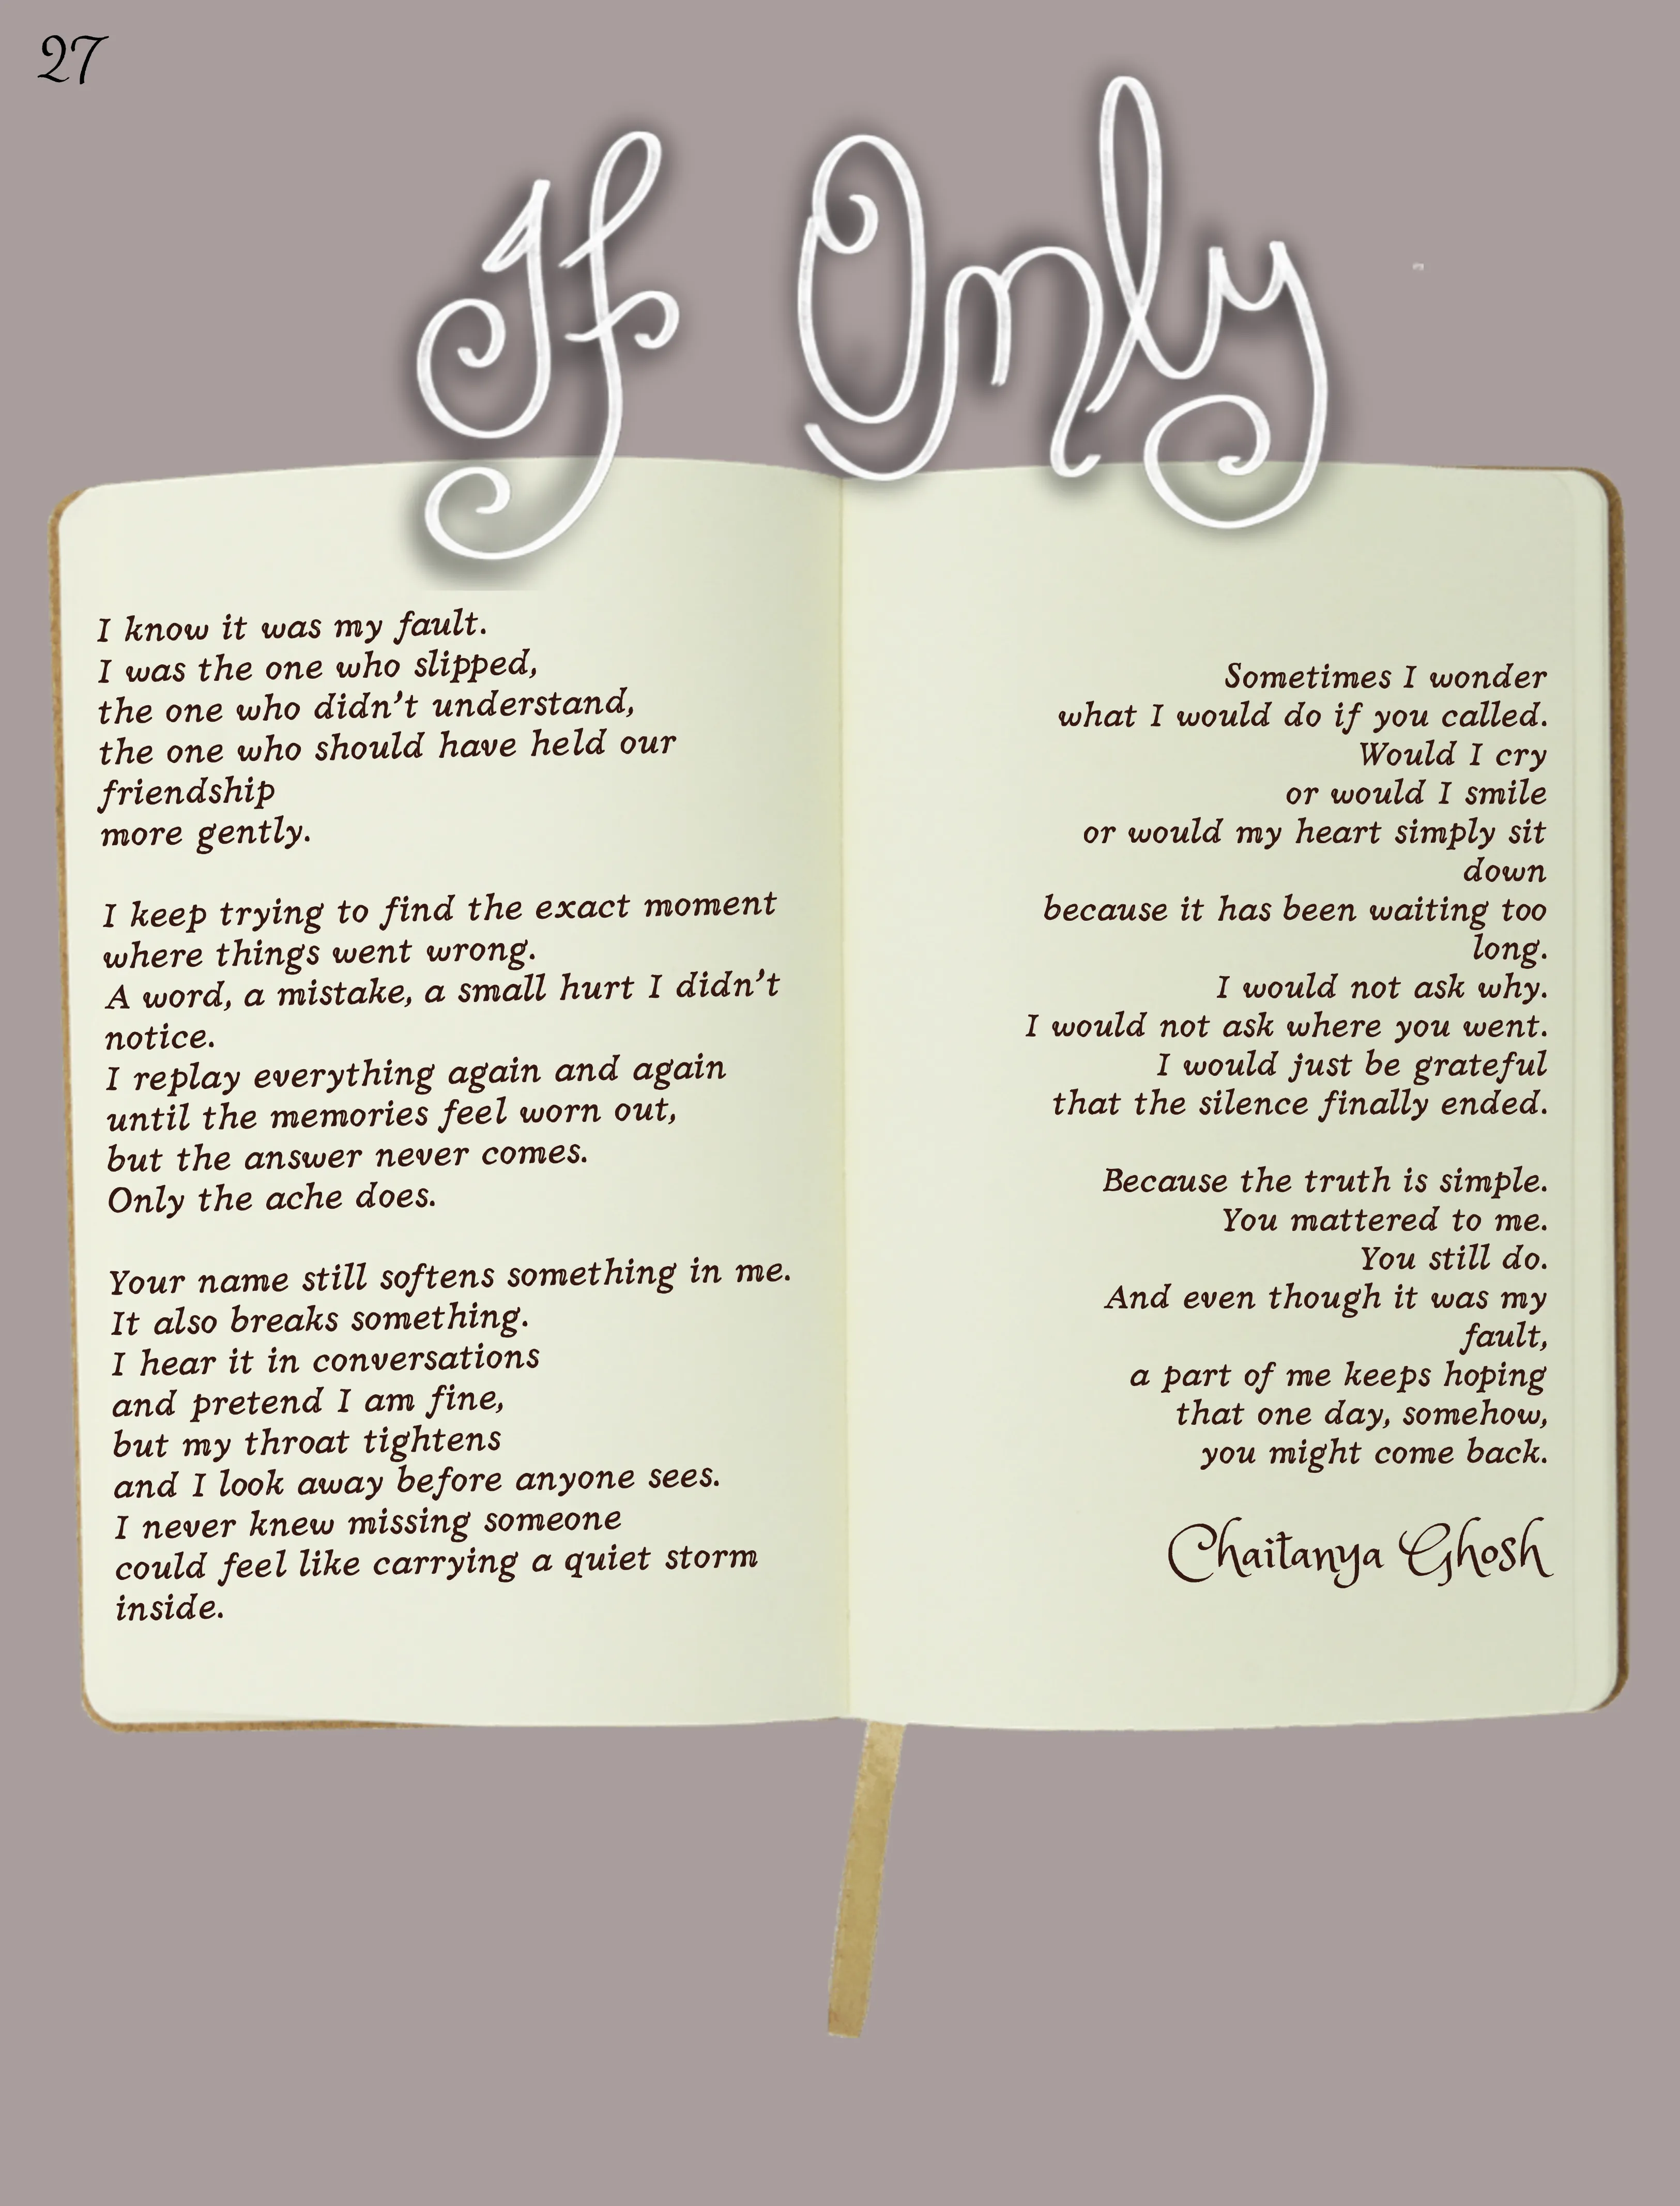 27
If Only
I know it was my fault.
I was the one who slipped,
the one who didn't understand,
the one who should have held our
friendship
more gently.
I keep trying to find the exact moment
where things went wrong.
A word, a mistake, a small hurt I didn't
notice.
I replay everything again and again
until the memories feel worn out,
but the answer never comes.
Only the ache does.
Your name still softens something in me.
It also breaks something.
I hear it in conversations
and pretend I am fine,
but my throat tightens
and I look away before anyone sees.
I never knew missing someone
could feel like carrying a quiet storm
inside.
Sometimes I wonder
what I would do if you called.
Would I cry
or would I smile
or would my heart simply sit
down
because it has been waiting too
long.
I would not ask why.
I would not ask where you went.
I would just be grateful
that the silence finally ended.
Because the truth is simple.
You mattered to me.
You still do.
And even though it was my
fault,
a part of me keeps hoping
that one day, somehow,
you might come back.
Chaitanya Ghosh